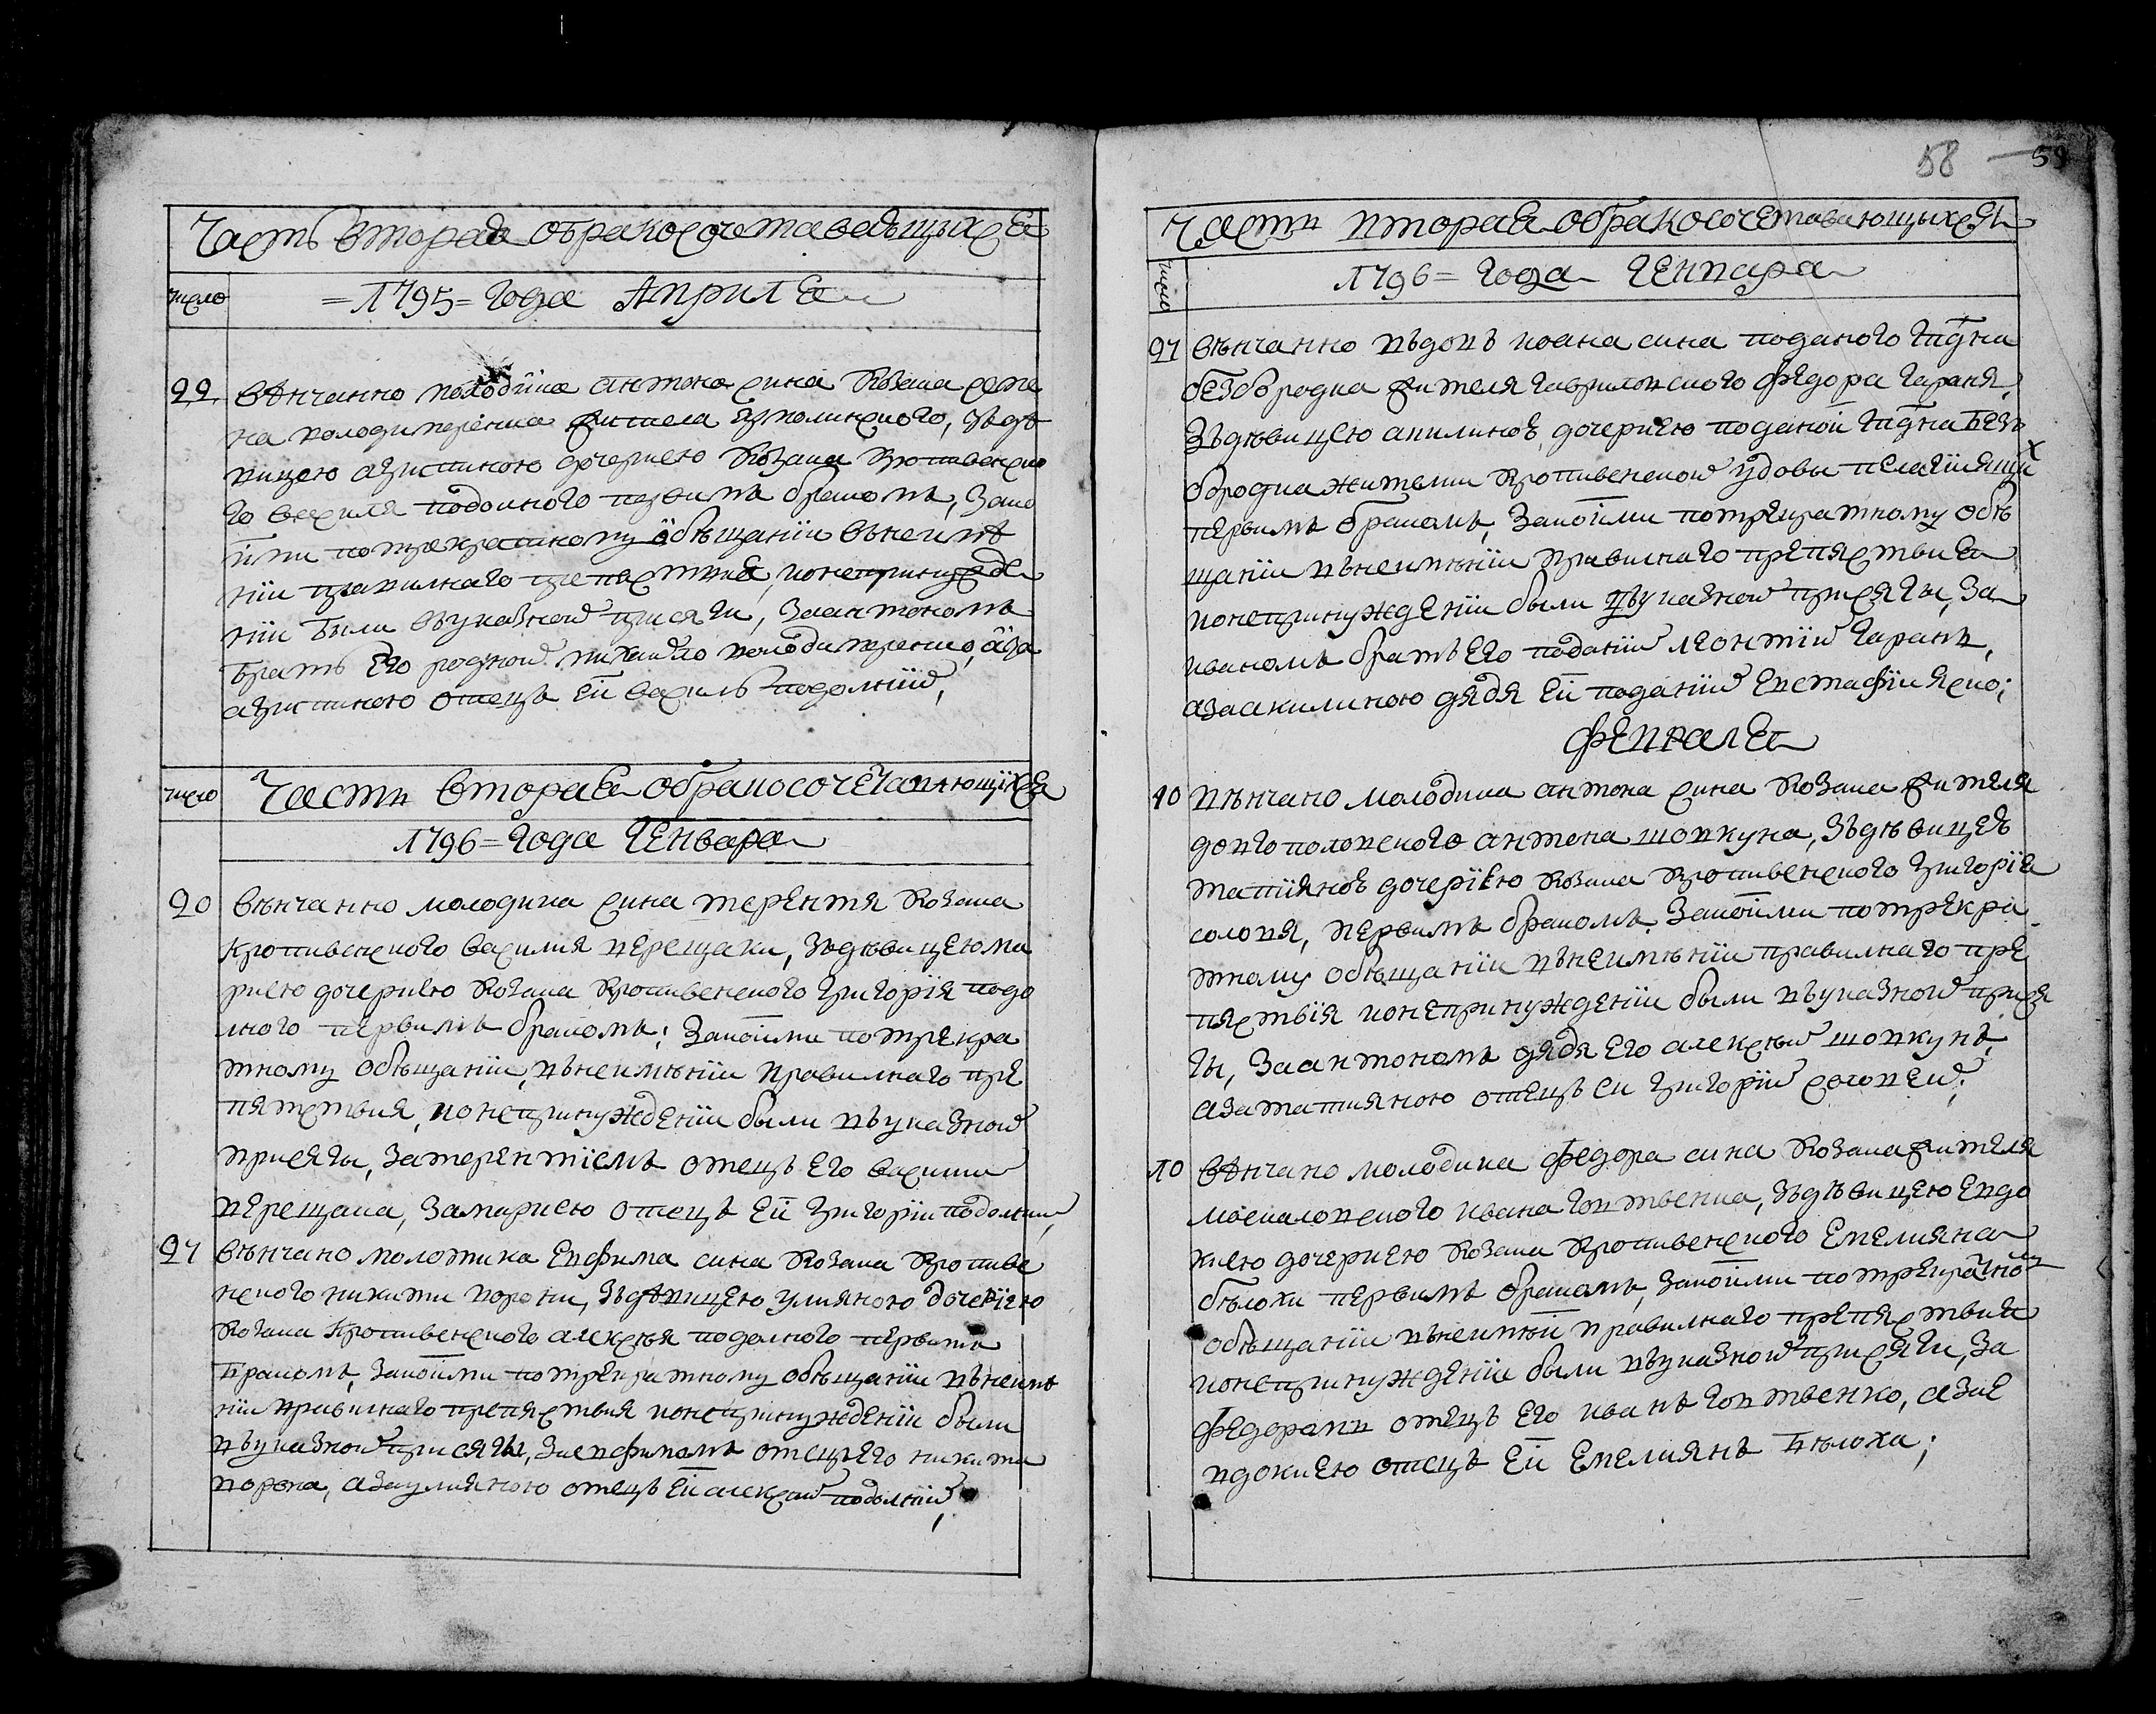 Часть вторая о бракосочетавающихся
число
=1795= Года Априля
22 вѣнчанно молодика антона сина козака
на володимеренка жителя, зъдѣ
вицею дочериею козака кропивенско
го василя подолного первимъ бракомъ, за ко
ими по трекратному обѣщанїи внеимѣ
нїи правилного препяствия, и о непринужде
нїи были въ указной присяги, за антономъ
братъ его родной михайло володимеренко, а за
отецъ ей василь подолнїй,
число
Часть вторая о бракосочетавающихся
1796= Года Генваря
20 вѣнчанно молодика сина терентя козака
кропивенского василия верещаки, зъ дѣвицею ма
риею дочериею козака кропивенского григорїя подо
лного первимъ бракомъ; за коими по трекра
тному обѣщанїи, въ неимѣнїи правилного пре
пятствия, и о непринужденїи были въ указной
присяги, за терентїемъ отецъ его василий
верещака, за мариею отецъ ей григорїй подолний,
21 вѣнчано молотика евфима сина козака кропиве
нского никити ворони, зъ дѣвицею улияною дочерїею
козака кропивенского алексѣя подолного первимъ
бракомъ, за коими по трекратному обѣщанїи внеимѣ
нїи правилного препяствия и о непринужденїи были
въ указной присяги, за евфимомъ отецъ его никита
ворона, а за улияною отецъ ей алексѣй подолнїй,
58 59
Часть вторая о бракосочетавающихся
число
1796= Года Генвара
21 вѣнчанно въдовъ иоана сина поданого
безбородка жителя гавриловского федора гараня,
зъ дѣвицею акилиною, дочериею поданой безъ
бородка жителки кропивенской удовы пелагїи
первимъ бракомъ, за коими по трекратному обѣ
щанїи въ неимѣнїи правилного препяствия
и о непринужденїи были въ указной присяги, за
иваномъ братъ его поданїй леонтїй гарань,
а за акилиною дядя ей поданїй евстафїй яско;
Февраля
10 вѣнчано молодика антона сина козака жителя
антона шовкуна, зъ дѣвицею
татияною дочерїею козака кропивенского григорїя
соловя, первимъ бракомъ. за коими по трекра
тному обѣщанїи въ неимѣнїи правилного пре
пяствїя и о непринужденїи были въ указной прися
ги, за антономъ дядя его алексѣй шовкунъ,
а за татияною отецъ еи григорїй соловей;
10 вѣнчано молодика федора сина козака жителя
москаловского ивана говтвенка, зъ дѣвицею евдо
киею дочериею козака кропивенского емелияна
бѣлохи первимъ бракомъ, за коими по трекратному
обѣщанїи въ неимѣнїи правилного препяствия
и о непринужденїи были въ указной присяги, за
федоромъ отецъ его иванъ говтвенко, а за е
вдокиею отецъ ей емелиянъ бѣлоха;